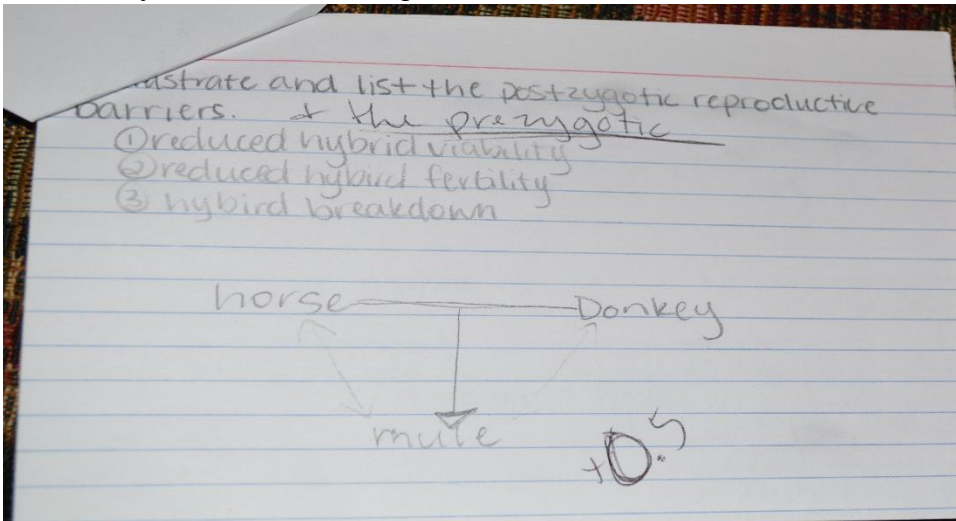 ustrate and list the postzygotic reproductive
barriers. + the prezygotic
① reduced hybrid viability
② reduced hybird fertility
③ hybird breakdown
horse Donkey
mule
+0.5